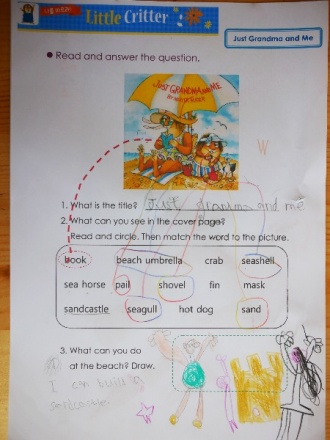 Little Critter
Just Grandma and Me
● Read and answer the question.
JUST GRANDMA AND ME
BY MERCER MAYER
W
1. What is the title? Just grandma and me
2. What can you see in the cover page?
Read and circle. Then match the word to the picture.
book beach umbrella crab seashell
sea horse pail shovel fin mask
sandcastle seagull hot dog sand
3. What can you do
at the beach? Draw.
I can build